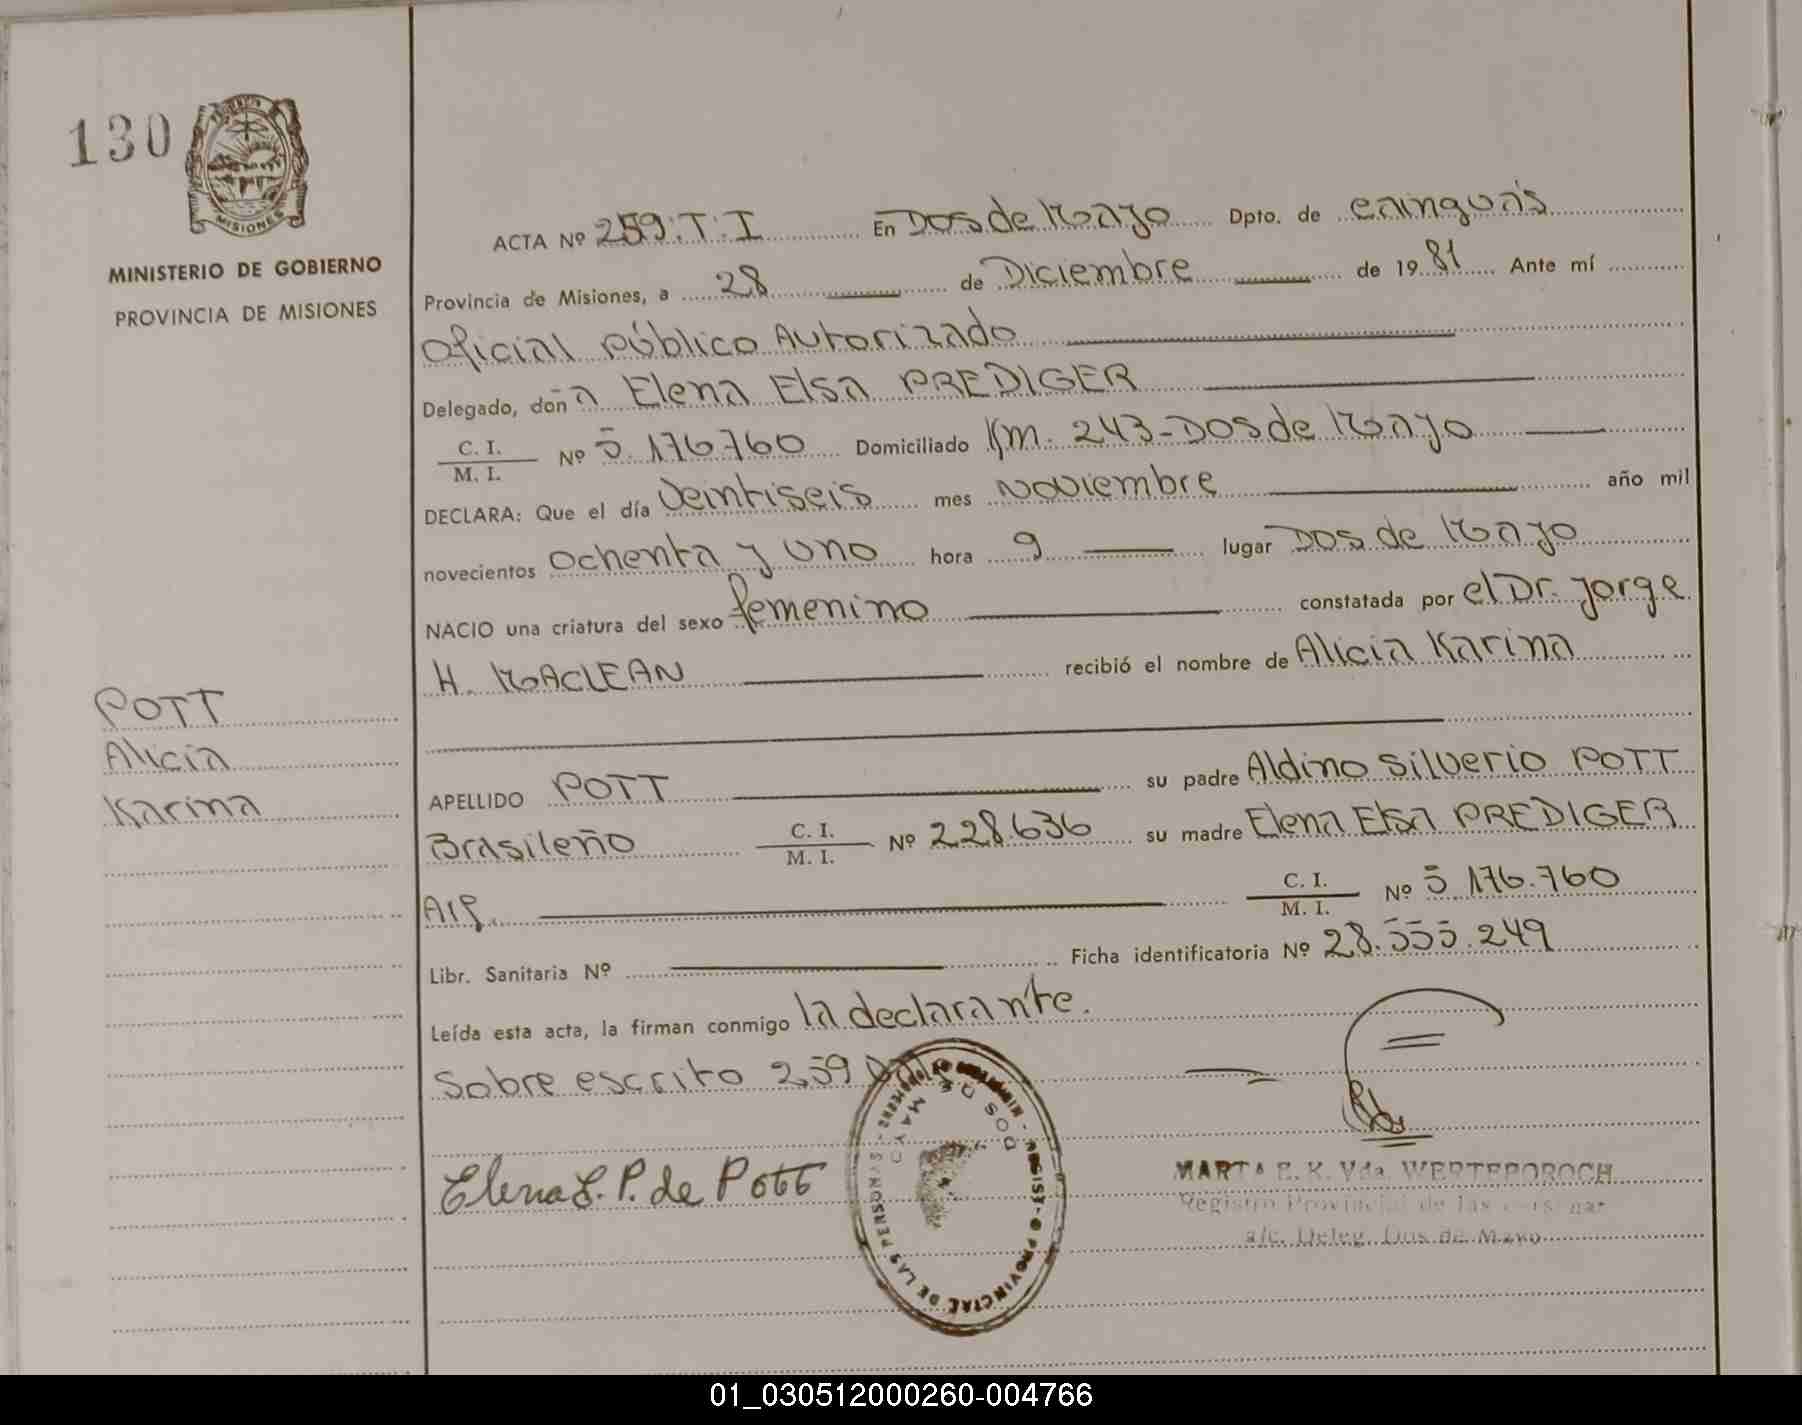 130
MISIONES
MINISTERIO DE GOBIERNO
PROVINCIA DE MISIONES
POTT
Alicia
Karina
ACTA Nº 259.T.I En Dos de Mayo Dpto. de Cainguás
Provincia de Misiones, a 28 de Diciembre de 1981 Ante mí
Oficial Público Autorizado
Delegado, doña Elena Elsa PREDIGER
C. I.
M. I. Nº 5.176760 Domiciliado Km. 243-Dos de Mayo
DECLARA: Que el día Veintiseis mes Noviembre año mil
novecientos Ochenta y uno hora 9 lugar Dos de Mayo
NACIO una criatura del sexo femenino constatada por el Dr. Jorge
H. MACLEAN recibió el nombre de Alicia Karina
APELLIDO POTT su padre Aldino Silverio POTT
Brasileño C. I. M. I. Nº 228.636 su madre Elena Elsa PREDIGER
Arg. C. I. M. I. Nº 5.176.760
Libr. Sanitaria Nº Ficha identificatoria Nº 28.555.249
Leída esta acta, la firman conmigo la declarante.
Sobre escrito 259
Elena E. P. de Pott
DOS DE MAYO
PROVINCIAL DE LAS PERSONAS
MARTA E. K. Vda. WERTEPOROCH
Registro Provincial de las
a/c. Deleg. Dos de Mayo
01_030512000260-004766